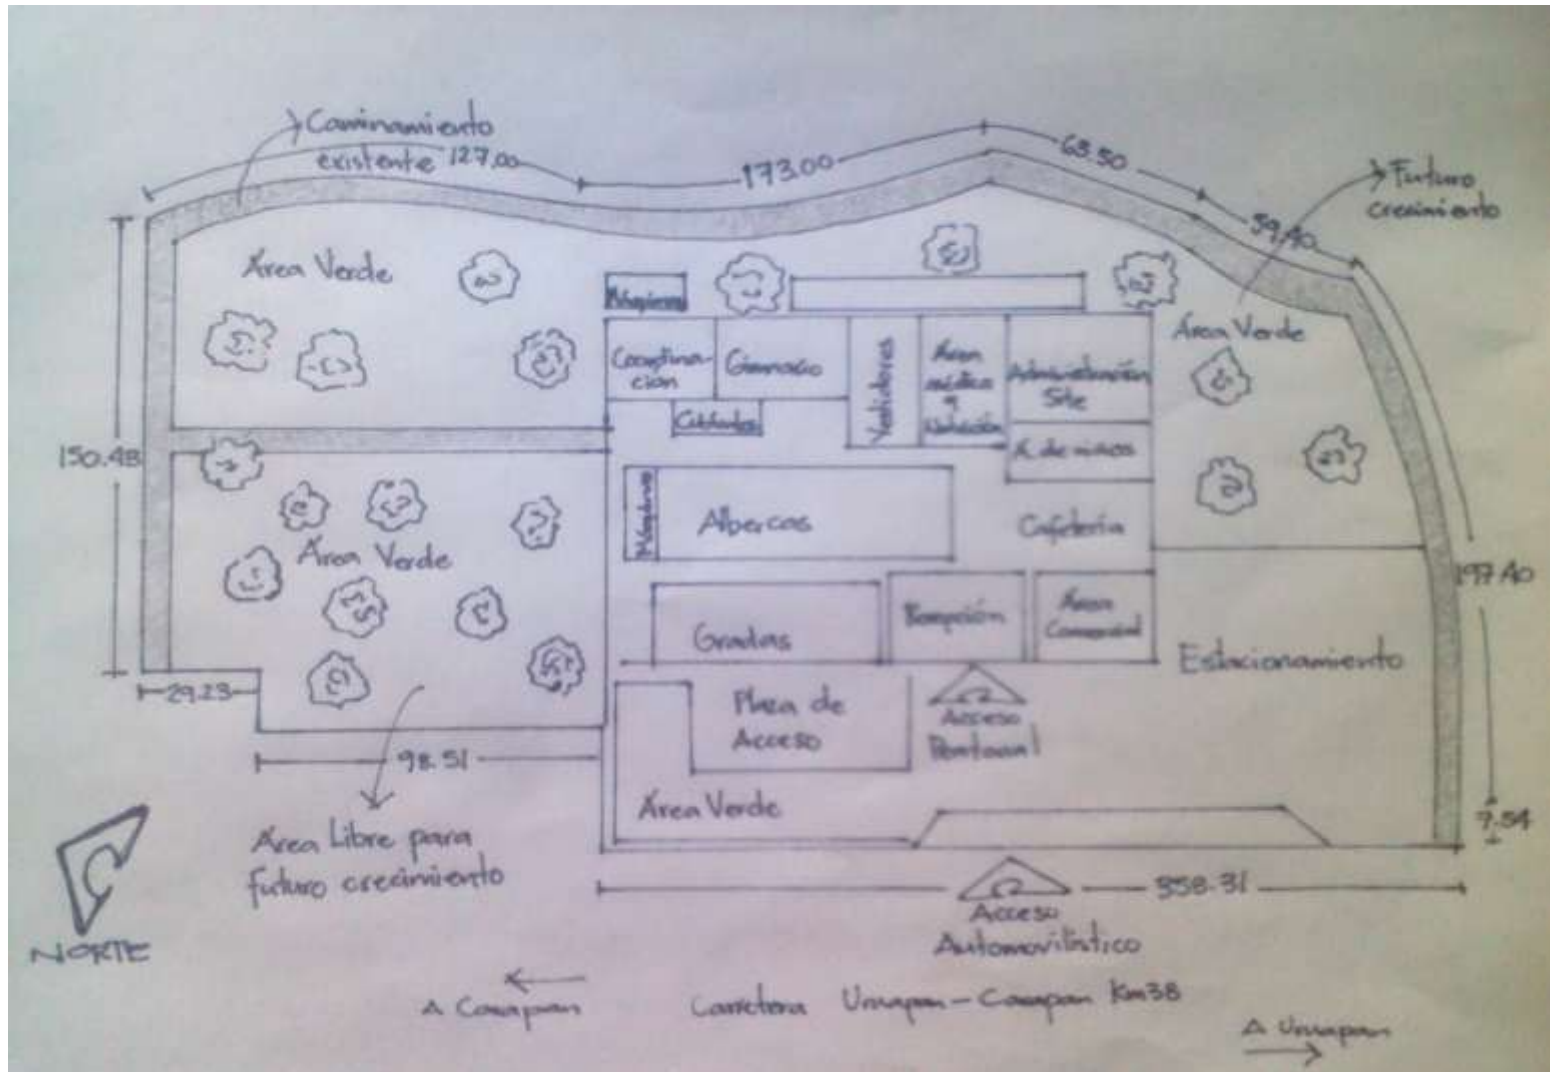 Caminamiento
existente 127.00
173.00
63.50
59.40
Futuro
crecimiento
Área Verde
Área Verde
Máquinas
Coordina-
ción
Gimnasio
Vestidores
Área
médica
y
Nutrición
Administración
Site
A. de niños
150.48
Área Verde
Máquinas
Albercas
Cafetería
197.40
Gradas
Recepción
Área
Comercial
Estacionamiento
29.23
Plaza de
Acceso
Acceso
Peatonal
98.51
Área Verde
7.54
Área Libre para
futuro crecimiento
358.31
Acceso
Automovilístico
NORTE
A Carapan
Carretera Uruapan-Carapan Km38
A Uruapan